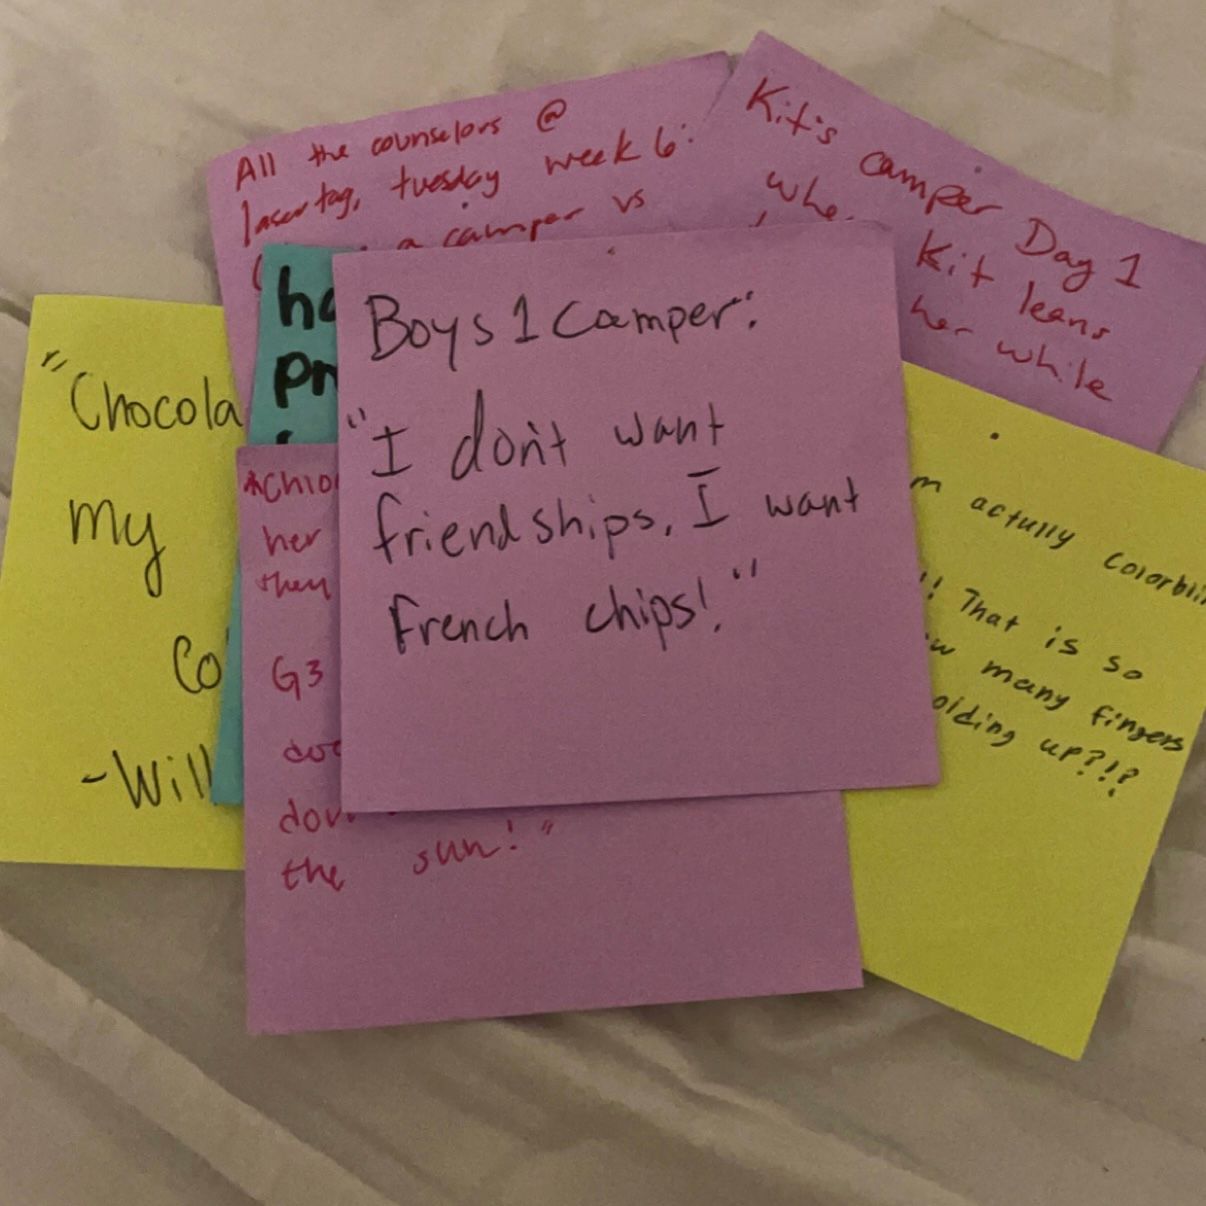 All the counselors @
laser tag, tuesday week 6:
a camper vs
Kit's camper Day 1
Kit leans
her while
"Chocola
my
Co
-Will
ha
pr
Boys 1 Camper:
"I don't want
friendships, I want
French chips!"
her
then
G3
the sun!"
m actully colorbli
!! That is so
w many fingers
olding up?!?